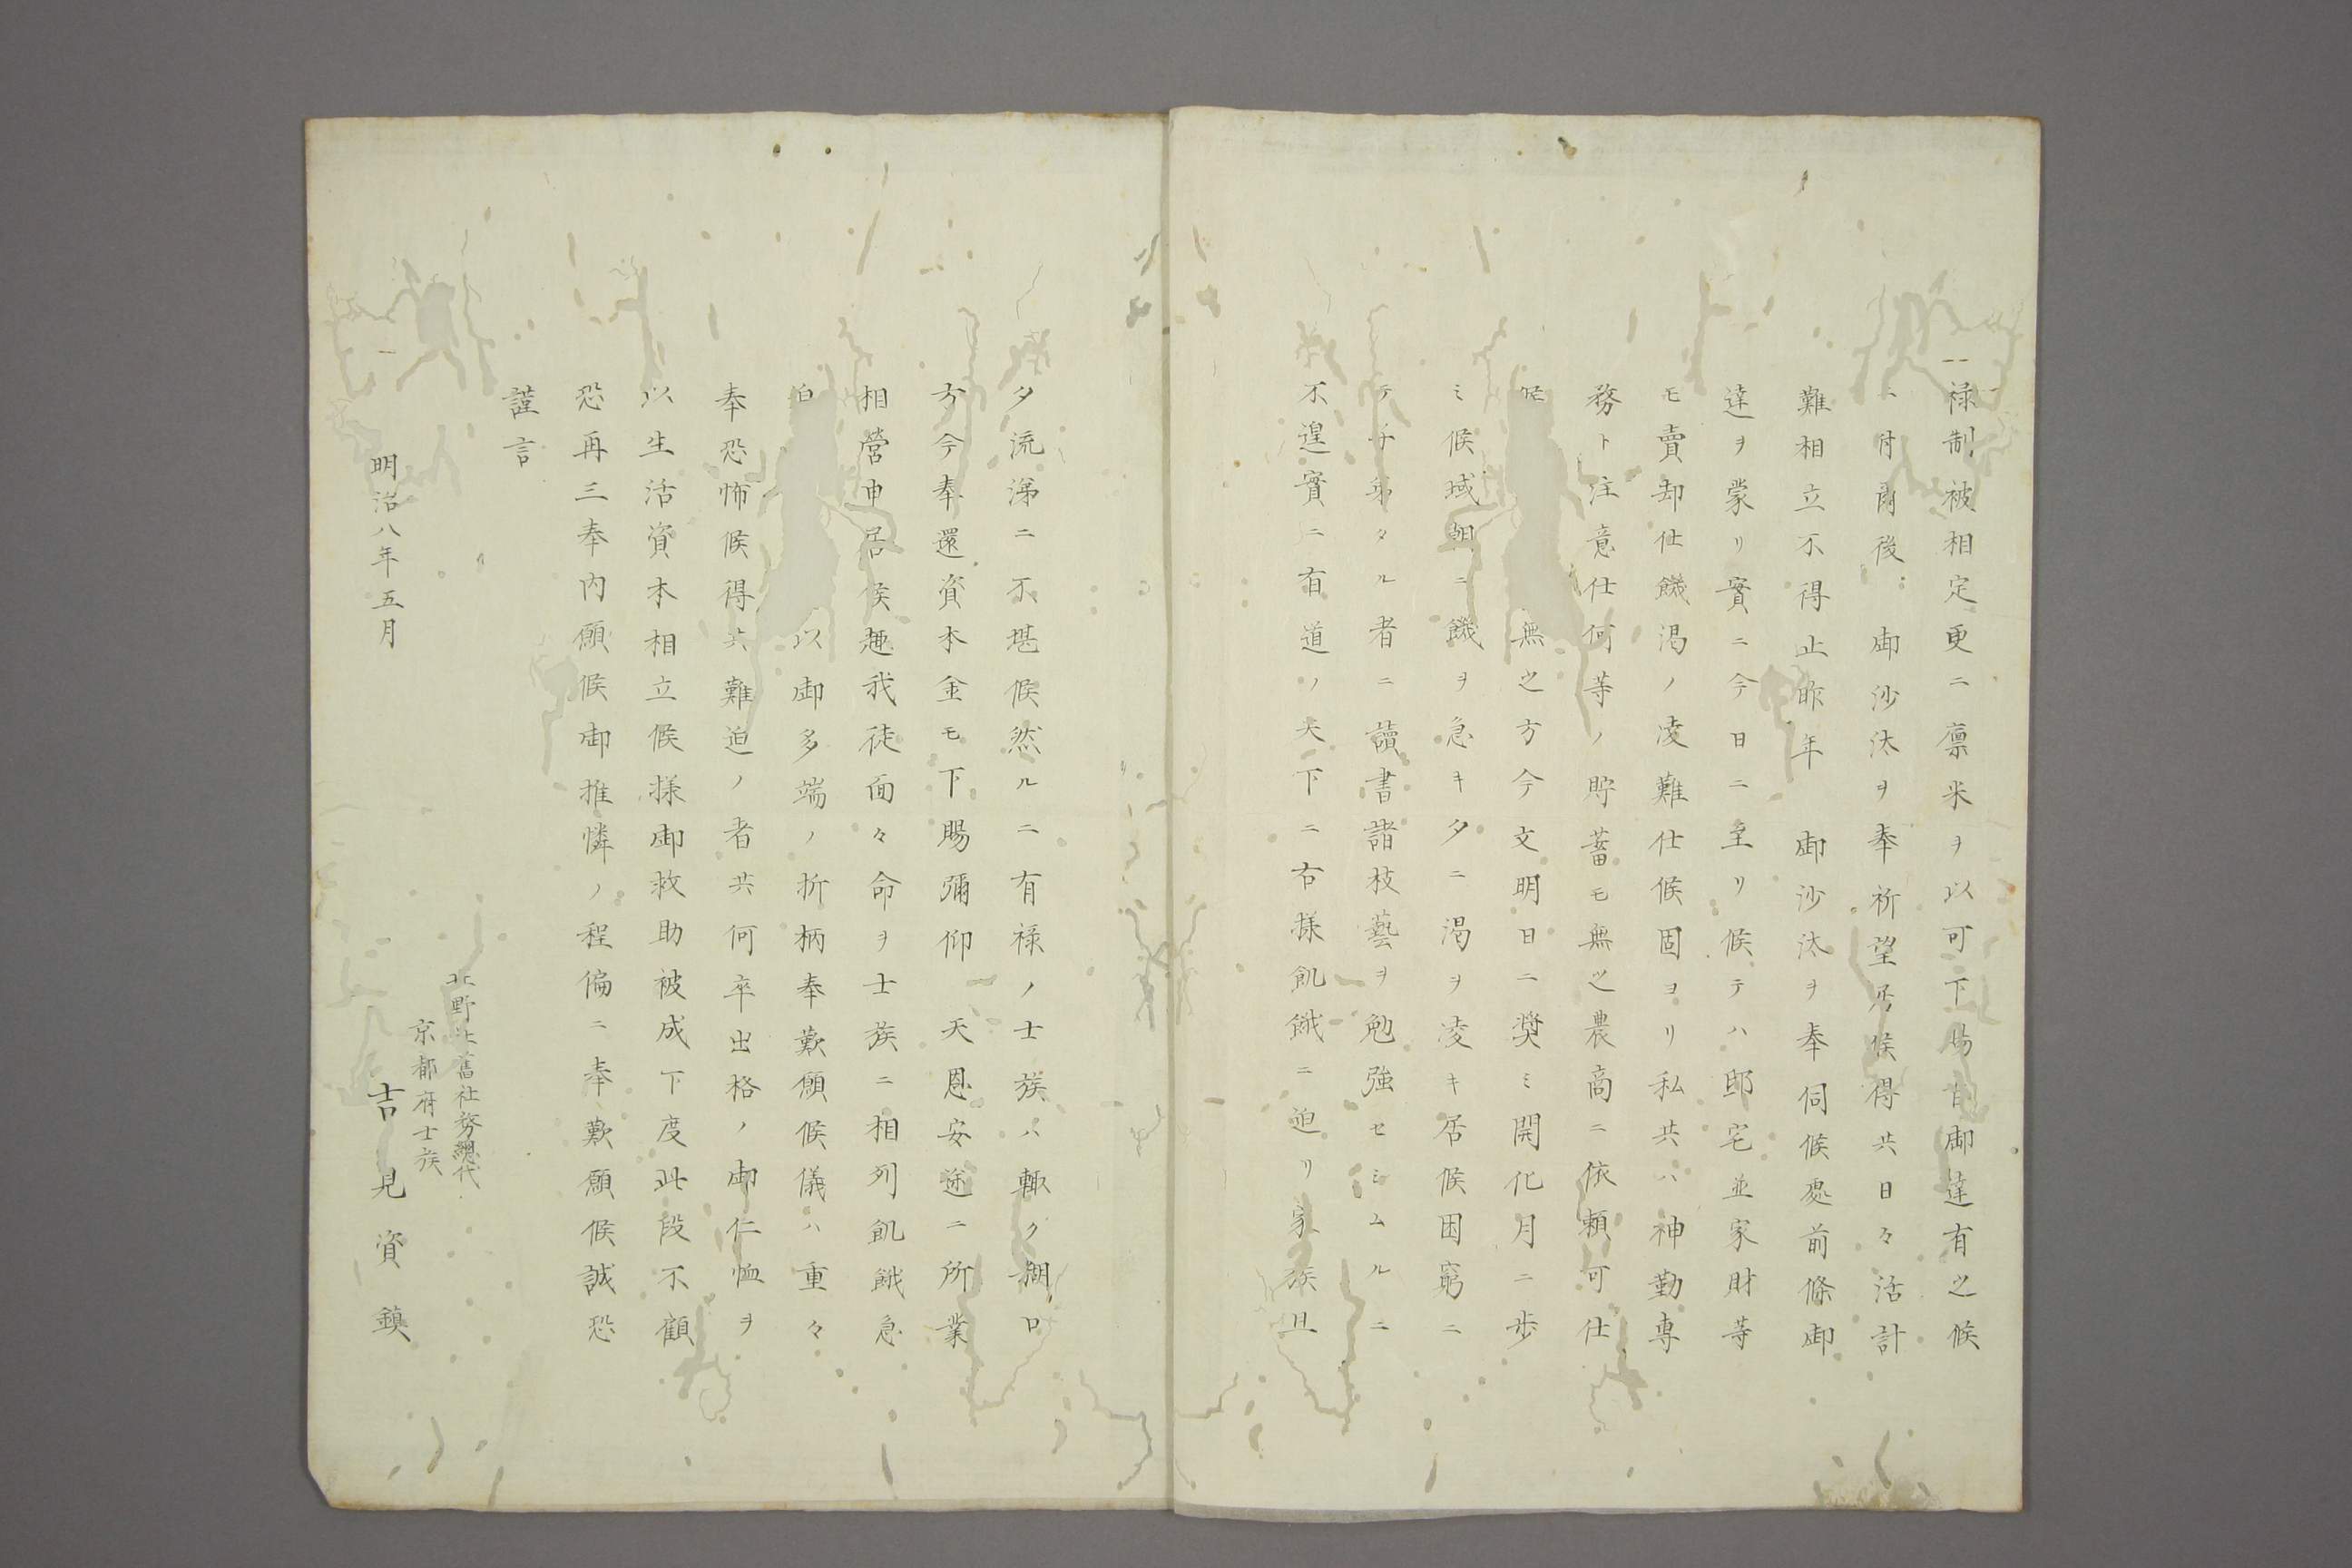 禄制被相定更ニ廩米ヲ以可下賜旨御達有之候
ニ付爾後　御沙汰ヲ奉祈望居候得共日々活計
難相立不得止昨年　御沙汰ヲ奉伺候處前條御
達ヲ蒙リ實ニ今日ニ至リ候テハ邸宅並家財等
モ賣却仕饑渇ノ凌難仕候固ヨリ私共ハ神勤専
務ト注意仕何等ノ貯蓄モ無之農商ニ依頼可仕
候　無之方今文明日ニ奨ミ開化月ニ歩
ミ候域朝ニ饑ヲ急キタニ渇ヲ凌キ居候困窮ニ
テ子弟タル者ニ讀書諸技藝ヲ勉強セシムルニ
不遑實ニ有道ノ天下ニ右様飢餓ニ迫リ家族旦
夕流涕ニ不堪候然ルニ有禄ノ士族ハ輙ク糊口
方今奉還資本金モ下賜彌仰　天恩安途ニ所業
相營申居候趣我徒面々命ヲ士族ニ相列飢餓急
迫　以御多端ノ折柄奉歎願候儀ハ重々
奉恐怖候得共難迫ノ者共何卒出格ノ御仁恤ヲ
以生活資本相立候様御救助被成下度此段不顧
恐再三奉内願候御推憐ノ程偏ニ奉歎願候誠恐
謹言
明治八年五月
北野社舊社務總代
京都府士族
吉見資鎮